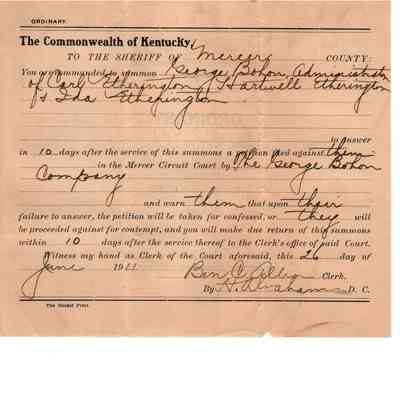 ORDINARY.
The Commonwealth of Kentucky,
TO THE SHERIFF OF Mercer COUNTY:
You are commanded to summon George Bohon, Administrator
of Carl Etherington, Hartwell Etherington
& Ida Etherington
to answer
in 10 days after the service of this summons a petition filed against them
in the Mercer Circuit Court by The George Bohon
Company
and warn them that upon their
failure to answer, the petition will be taken for confessed, or they will
be proceeded against for contempt, and you will make due return of this summons
within 10 days after the service thereof to the Clerk's office of said Court.
Witness my hand as Clerk of the Court aforesaid, this 26 day of
June 1911 Ben C. Allin Clerk.
By H. Abraham D. C.